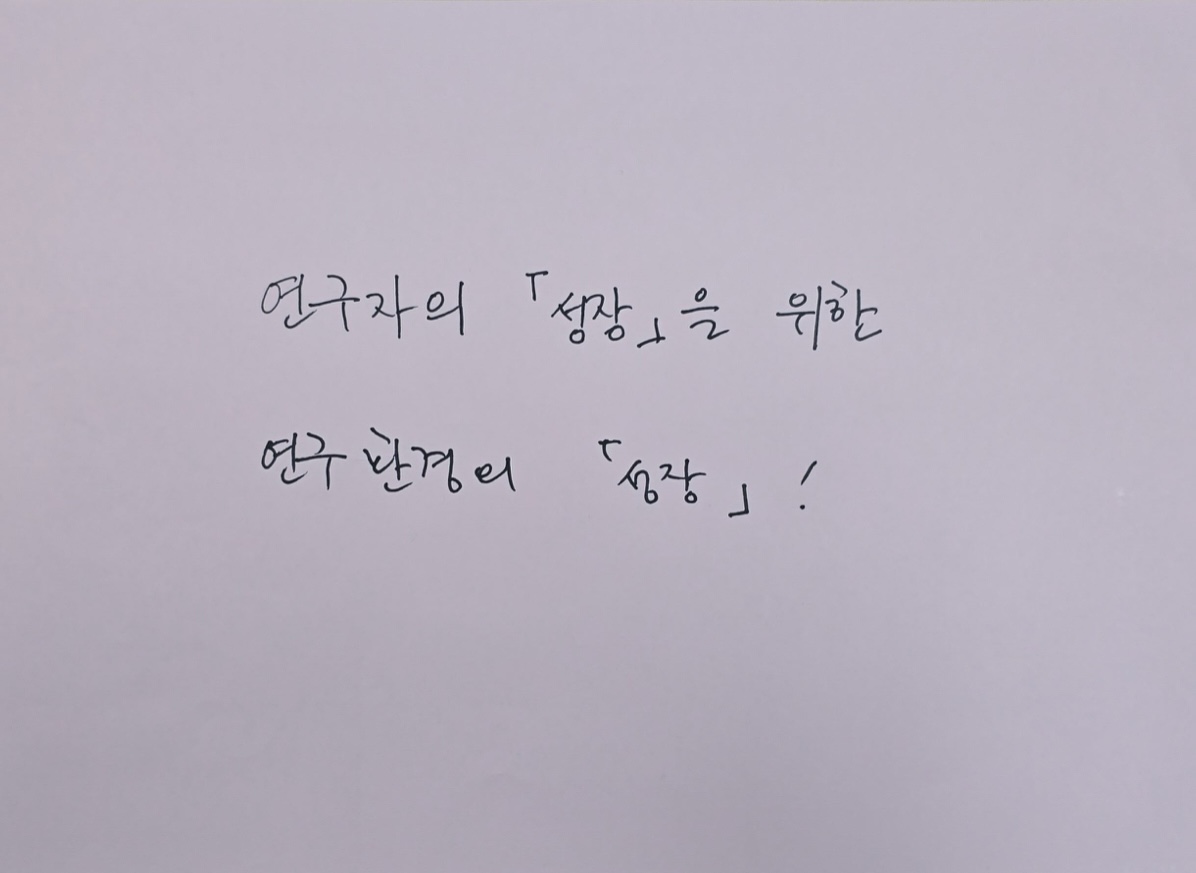 연구자의 「성장」을 위한
연구환경의 「성장」!